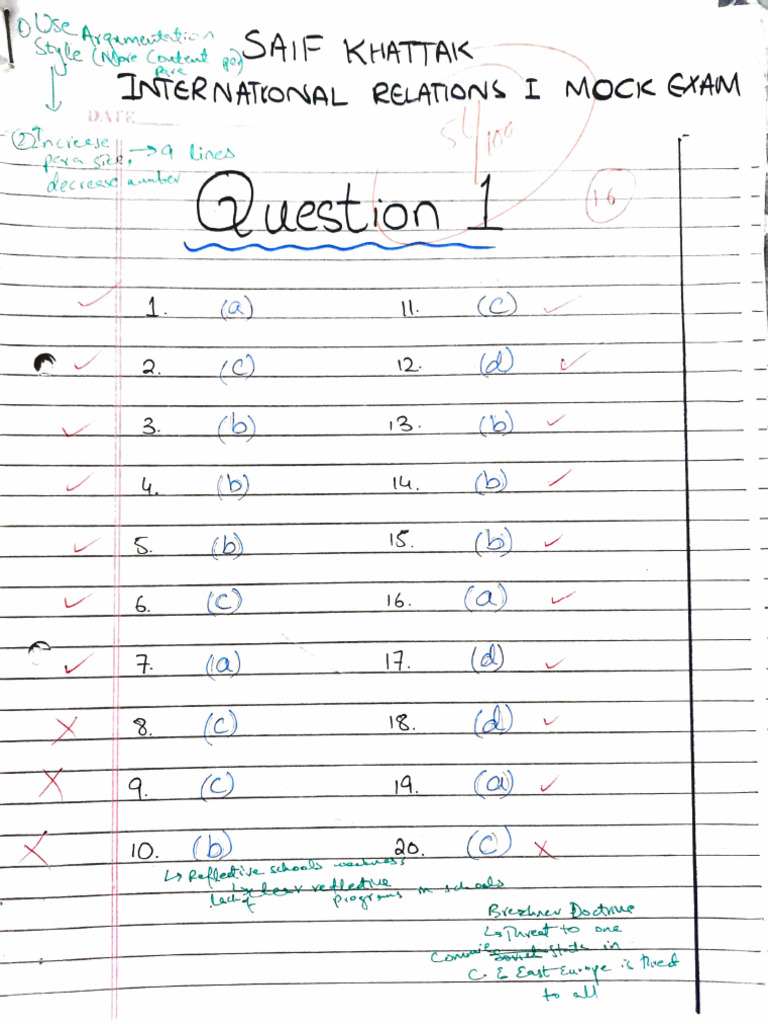 1) Use Argumentation
Style (More Content per
para)
SAIF KHATTAK
INTERNATIONAL RELATIONS I MOCK EXAM
DATE
/100
2) Increase
para size, → 9 lines
decrease number
Question 1
16
1. (a) 11. (c)
2. (c) 12. (d)
3. (b) 13. (b)
4. (b) 14. (b)
5. (b) 15. (b)
6. (c) 16. (a)
7. (a) 17. (d)
8. (c) 18. (d)
9. (c) 19. (a)
10. (b) 20. (c)
↳ Reflective schools weakness
↳ lack of reflective programs in schools
Brezhnev Doctrine
↳ Threat to one
Commie state in
C. & East Europe is threat
to all